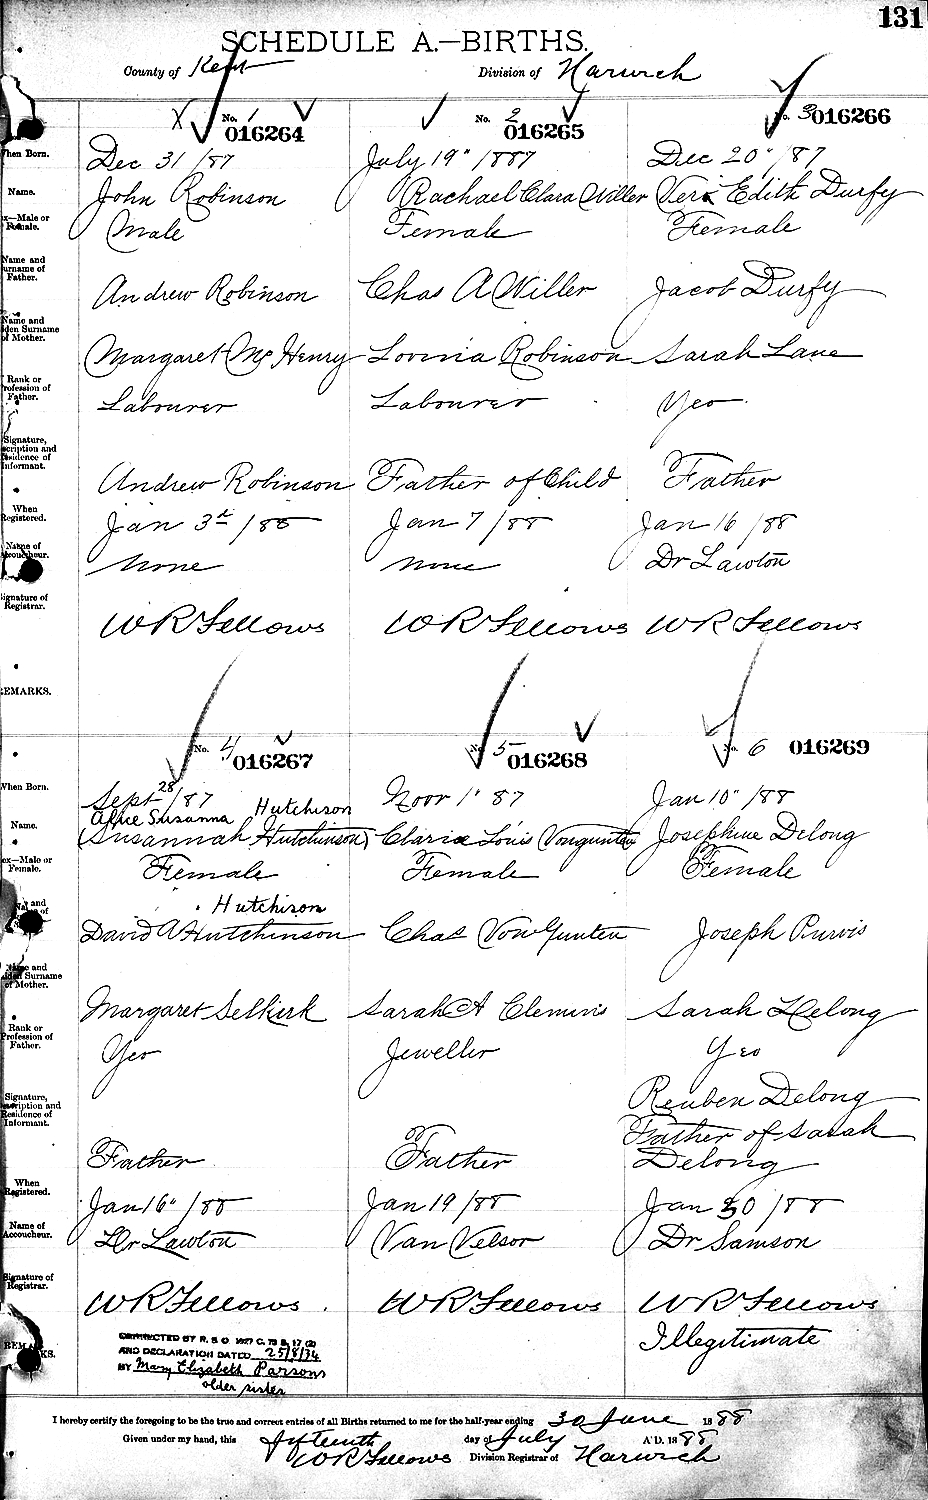 131
SCHEDULE A.—BIRTHS.
County of Kent Division of Harwich
No. 1 016264
When Born. Dec 31 /87
Name. John Robinson
Sex—Male or Female. Male
Name and Surname of Father. Andrew Robinson
Name and Maiden Surname of Mother. Margaret McHenry
Rank or Profession of Father. Labourer
Signature, Description and Residence of Informant. Andrew Robinson
When Registered. Jan 3rd /88
Name of Accoucheur. None
Signature of Registrar. W R Fellows
REMARKS.
No. 2 016265
July 19" /1887
Rachael Clara Willer
Female
Chas A Willer
Lovina Robinson
Labourer
Father of Child
Jan 7 /88
None
W R Fellows
No. 3 016266
Dec 20" /87
Vera Edith Durfy
Female
Jacob Durfy
Sarah Lane
Yeo
Father
Jan 16 /88
Dr Lawton
W R Fellows
No. 4 016267
When Born. Sept 28 /87
Alice Susanna Hutchison
Name. Susannah Hutchinson
Sex—Male or Female. Female
Hutchison
Name and Surname of Father. David A Hutchinson
Name and Maiden Surname of Mother. Margaret Selkirk
Rank or Profession of Father. Yeo
Signature, Description and Residence of Informant. Father
When Registered. Jan 16" /88
Name of Accoucheur. Dr Lawton
Signature of Registrar. W R Fellows
REMARKS. CORRECTED BY R. S. O. 1927 C. 78 S. 17 (2)
AND DECLARATION DATED 25/8/34
BY Mary Elizabeth Parsons
older sister
No. 5 016268
Nov 1" 87
Clarie Louis Vongunten
Female
Chas Von Gunten
Sarah A Clemins
Jeweller
Father
Jan 19 /88
Van Velsor
W R Fellows
No. 6 016269
Jan 10" /88
Josephine Delong
Female
Joseph Purvis
Sarah Delong
Yeo
Reuben Delong
Father of Sarah
Delong
Jan 30 /88
Dr Samson
W R Fellows
Illegitimate
I hereby certify the foregoing to be the true and correct entries of all Births returned to me for the half-year ending 30 June 1888
Given under my hand, this fifteenth day of July A.D. 1888
W R Fellows Division Registrar of Harwich